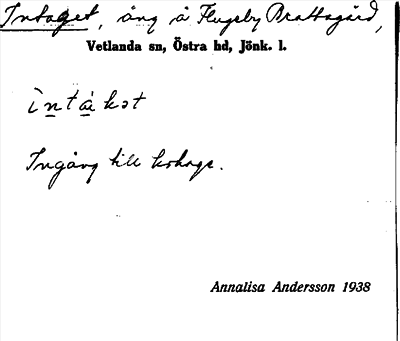 Intaget, äng å Flugeby Brattsgård,
Vetlanda sn, Östra hd, Jönk. l.
ìntákət
Ingång till kohage.
Annalisa Andersson 1938